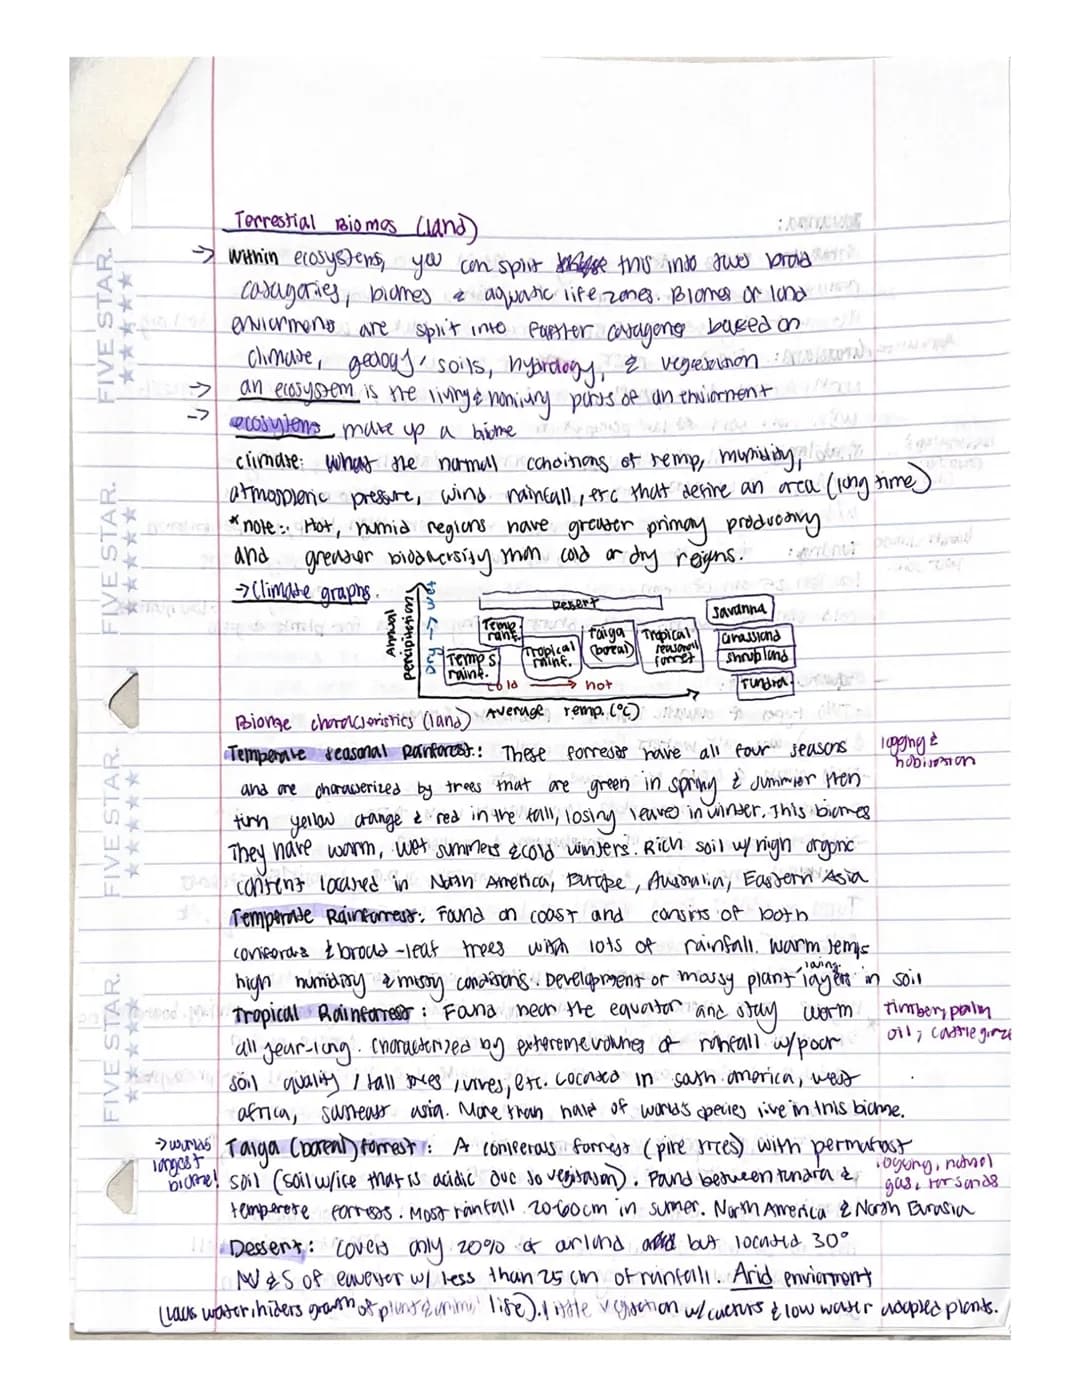 Terrestial Biomes (land)
→ Within ecosystems, you can split this into two broad
catagories, biomes & aquatic life zones. Biomes or land
enviorments are split into further catagories based on
climate, geology, soils, hydrology, & vegetation
→ an ecosystem is the living & nonliving parts of an enviorment
→ ecosystems make up a biome
climate: What the normal conditions of temp, humidity,
atmospheric pressure, wind rainfall, etc that define an area (long time)
*note: Hot, humid regions have greater primary productivity
and greater biodiversity than cold or dry reigns.
→ Climate graphs.
Annual percipitation
dry → wet
Dessert
Temp. rainf.
Temp S. rainf.
Tropical rainf.
Taiga (boreal)
Tropical seasonal forrest
Savanna
Grassland
Shrubland
Tundra
cold → hot
Average Temp. (°C)
Biome characteristics (land)
Temperate seasonal Rainforest: These forrests have all four seasons
logging & habitation
and are characterized by trees that are green in spring & summer then
turn yellow orange & red in the fall, losing leaves in winter. This biomes
They have warm, wet summers & cold winters. Rich soil w/ high organic
content located in North America, Europe, Australia, Eastern Asia
Temperate Rainforrest: Found on coast and consists of both
& broad-leaf trees with lots of rainfall. Warm temps
high humidity & misty conditions. Development or mossy plant layers in soil
Tropical Rainforrest: Found near the equator and stay warm
timber, palm oil, cattle
all year-long. Characterized by extereme volumes of rainfall w/ poor
soil quality / tall trees, vines, etc. Located in south america, west
africa, asia. More than half of worlds species live in this biome.
→ worlds longest biome!
Taiga (boreal) forrest: A coniferous forrest (pine trees) with permafrost
soil (soil w/ ice that is acidic due to vegitation). Found between tundra &
logging, natural gas, tar sands
temperete forrests. Most rainfall 20-60cm in sumer. North America & North Eurasia
Dessert: Covers only 20% of but located 30°
N & S of w/ less than 25 cm of rainfall. Arid enviorment
(lack water hiders growth of plant & animal life). little vegitation w/ cactus & low water adapted plants.
FIVE STAR.
FIVE STAR.
FIVE STAR.
FIVE STAR.